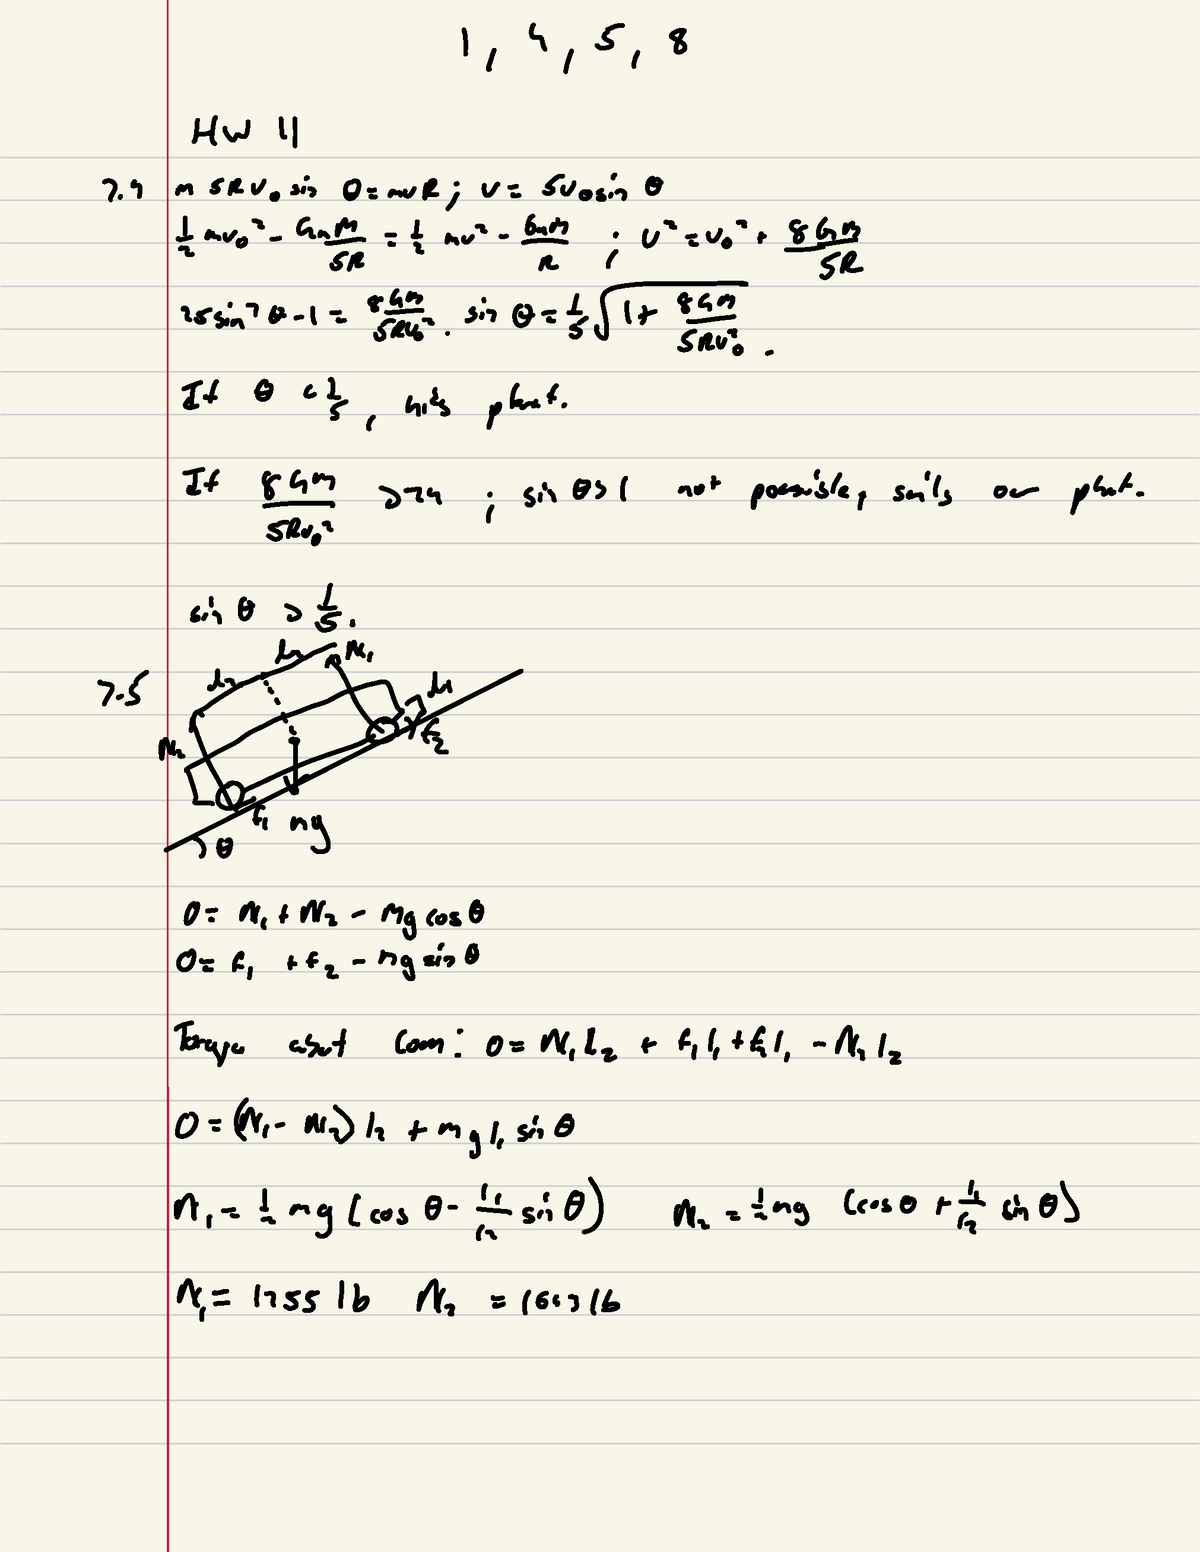 1, 4, 5, 8
HW 11
7.4 m 5R v₀ sin θ = mvR ; v = 5v₀ sin θ
½ mv₀² - GmM/5R = ½ mv² - GmM/R ; v² = v₀² + 8GM/5R
25 sin² θ - 1 = 8GM/5Rv₀² . sin θ = 1/5 √(1 + 8GM/5Rv₀²) .
If θ < 1/5, hits planet.
If 8GM/5Rv₀² > 24 ; sin θ > 1 not possible, sails over planet.
sin θ > 1/5 .
7.5
l₂ l₂ N₁
l₁
N₂ f₂
f₁ mg
θ
0 = N₁ + N₂ - Mg cos θ
0 = f₁ + f₂ - mg sin θ
Torque about Com: 0 = N₁ l₂ + f₁ l₁ + f₂ l₁ - N₂ l₂
0 = (N₁ - N₂) l₂ + mg l₁ sin θ
N₁ = ½ mg (cos θ - l₁/l₂ sin θ) N₂ = ½ mg (cos θ + l₁/l₂ sin θ)
N₁ = 1255 lb N₂ = lb